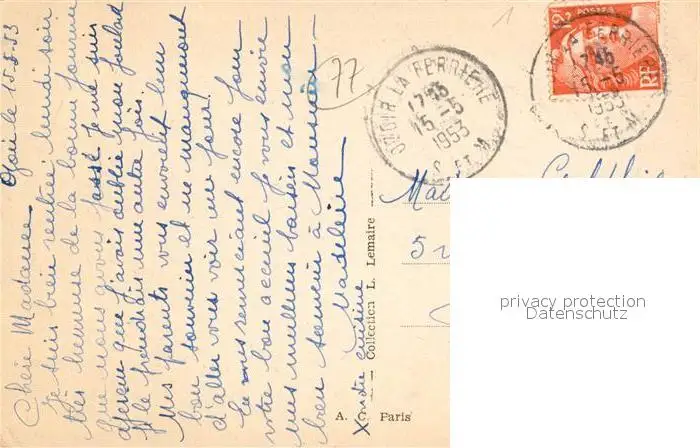 Ozoir le 15.5.53
Chère Madame
Je suis bien rentrée lundi soir
très heureuse de la bonne journée
que nous avons passé je me suis
aperçu que j'avais oublié mon foulard
je prendrais une autre fois.
Mes parents vous envoient leur
bon souvenir et ne manqueront
d'aller vous voir un jour.
En vous remerciant encore pour
votre bon accueil je vous envoie
mes meilleurs baisers et mon
bon souvenir à Monsieur
Madeleine
77
1
OZOIR LA FERRIERE
17 45
15-5
1953
S. ET M.
POSTES
12F
RF
LA FERRIERE
17 45
15-5
1953
S. ET M.
5
A. Paris
Collection L. Lemaire
privacy protection
Datenschutz